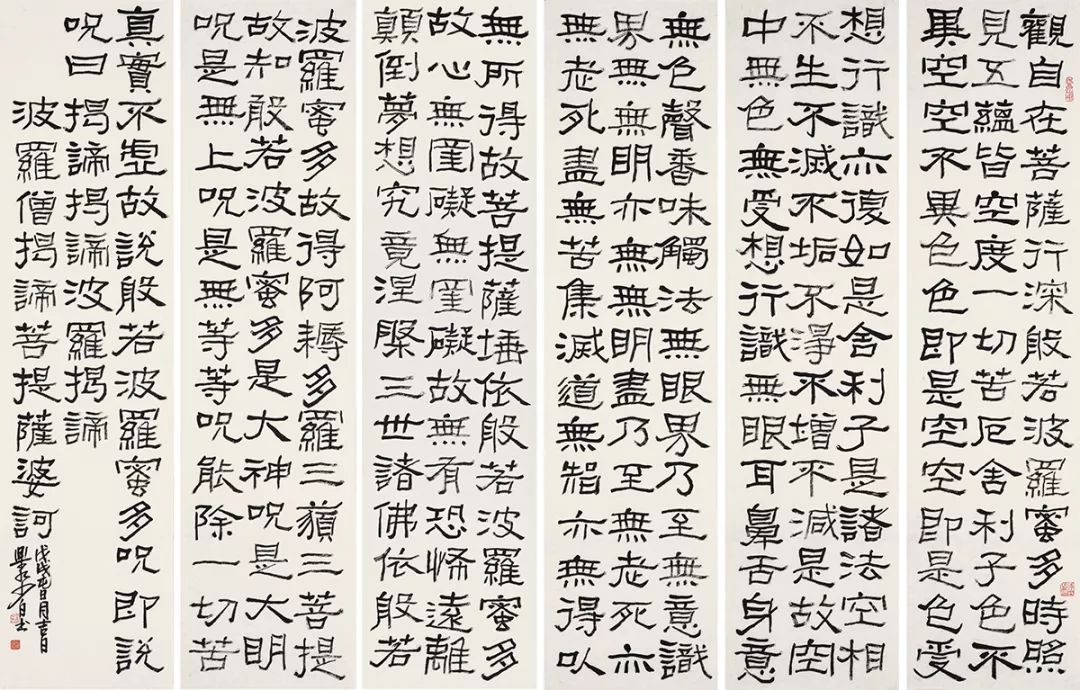 觀自在菩薩行深般若波羅蜜多時照
見五蘊皆空度一切苦厄舍利子色不
異空空不異色色即是空空即是色受
想行識亦復如是舍利子是諸法空相
不生不滅不垢不淨不增不減是故空
中無色無受想行識無眼耳鼻舌身意
無色聲香味觸法無眼界乃至無意識
界無無明亦無無明盡乃至無老死亦
無老死盡無苦集滅道無智亦無得以
無所得故菩提薩埵依般若波羅蜜多
故心無罣礙無罣礙故無有恐怖遠離
顛倒夢想究竟涅槃三世諸佛依般若
波羅蜜多故得阿耨多羅三藐三菩提
故知般若波羅蜜多是大神呪是大明
呪是無上呪是無等等呪能除一切苦
真實不虛故說般若波羅蜜多呪即說
呪曰 揭諦揭諦波羅揭諦
波羅僧揭諦菩提薩婆訶
戊戌